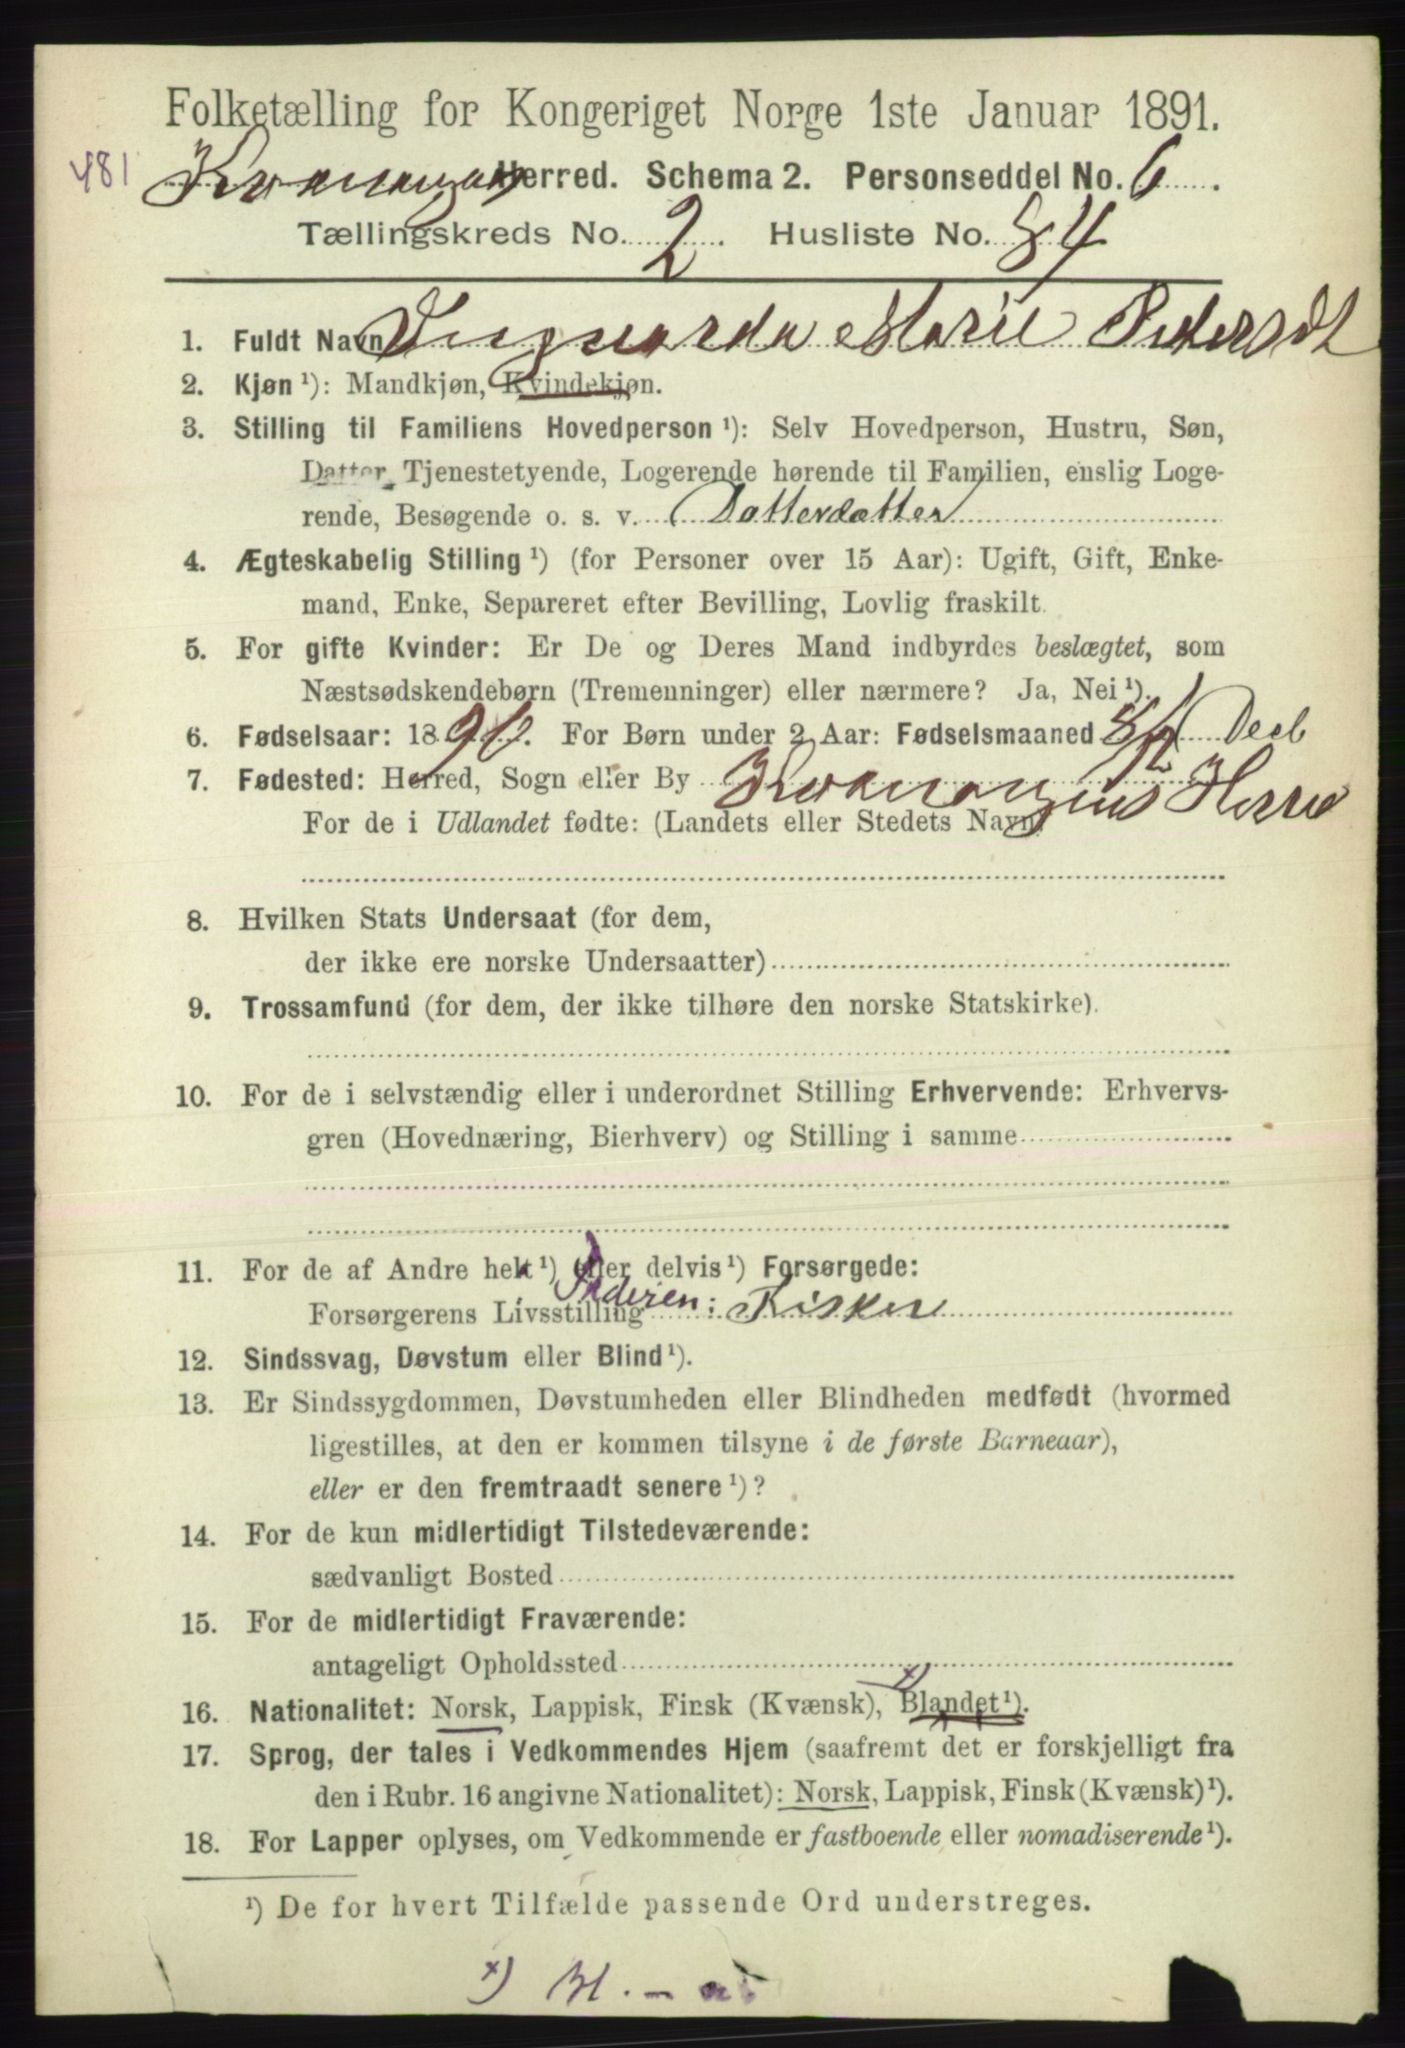 Folketælling for Kongeriget Norge 1ste Januar 1891.
481 Kvænangen Herred. Schema 2. Personseddel No. 6.
Tællingskreds No. 2. Husliste No. 84
1. Fuldt Navn Marie Pedersdt
2. Kjøn ¹): Mandkjøn, Kvindekjøn.
3. Stilling til Familiens Hovedperson ¹): Selv Hovedperson, Hustru, Søn,
Datter, Tjenestetyende, Logerende hørende til Familien, enslig Loge-
rende, Besøgende o. s. v. Datterdatter
4. Ægteskabelig Stilling ¹) (for Personer over 15 Aar): Ugift, Gift, Enke-
mand, Enke, Separeret efter Bevilling, Lovlig fraskilt.
5. For gifte Kvinder: Er De og Deres Mand indbyrdes beslægtet, som
Næstsødskendebørn (Tremenninger) eller nærmere? Ja, Nei ¹).
6. Fødselsaar: 1890. For Børn under 2 Aar: Fødselsmaaned 8/12 Decb
7. Fødested: Herred, Sogn eller By Kvænangens Herred
For de i Udlandet fødte: (Landets eller Stedets Navn)
8. Hvilken Stats Undersaat (for dem,
der ikke ere norske Undersaatter)
9. Trossamfund (for dem, der ikke tilhøre den norske Statskirke).
10. For de i selvstændig eller i underordnet Stilling Erhvervende: Erhvervs-
gren (Hovednæring, Bierhverv) og Stilling i samme
11. For de af Andre helt ¹) eller delvis ¹) Forsørgede:
Forsørgerens Livsstilling Faderen: Fisker
12. Sindssvag, Døvstum eller Blind ¹).
13. Er Sindssygdommen, Døvstumheden eller Blindheden medfødt (hvormed
ligestilles, at den er kommen tilsyne i de første Barneaar),
eller er den fremtraadt senere ¹)?
14. For de kun midlertidigt Tilstedeværende:
sædvanligt Bosted
15. For de midlertidigt Fraværende:
antageligt Opholdssted
16. Nationalitet: Norsk, Lappisk, Finsk (Kvænsk), x) Blandet ¹).
17. Sprog, der tales i Vedkommendes Hjem (saafremt det er forskjelligt fra
den i Rubr. 16 angivne Nationalitet): Norsk, Lappisk, Finsk (Kvænsk) ¹).
18. For Lapper oplyses, om Vedkommende er fastboende eller nomadiserende ¹).
¹) De for hvert Tilfælde passende Ord understreges.
x)